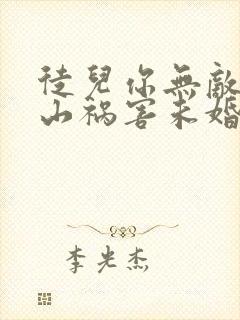 徒兒你無敵
山祸害未婚
李光杰